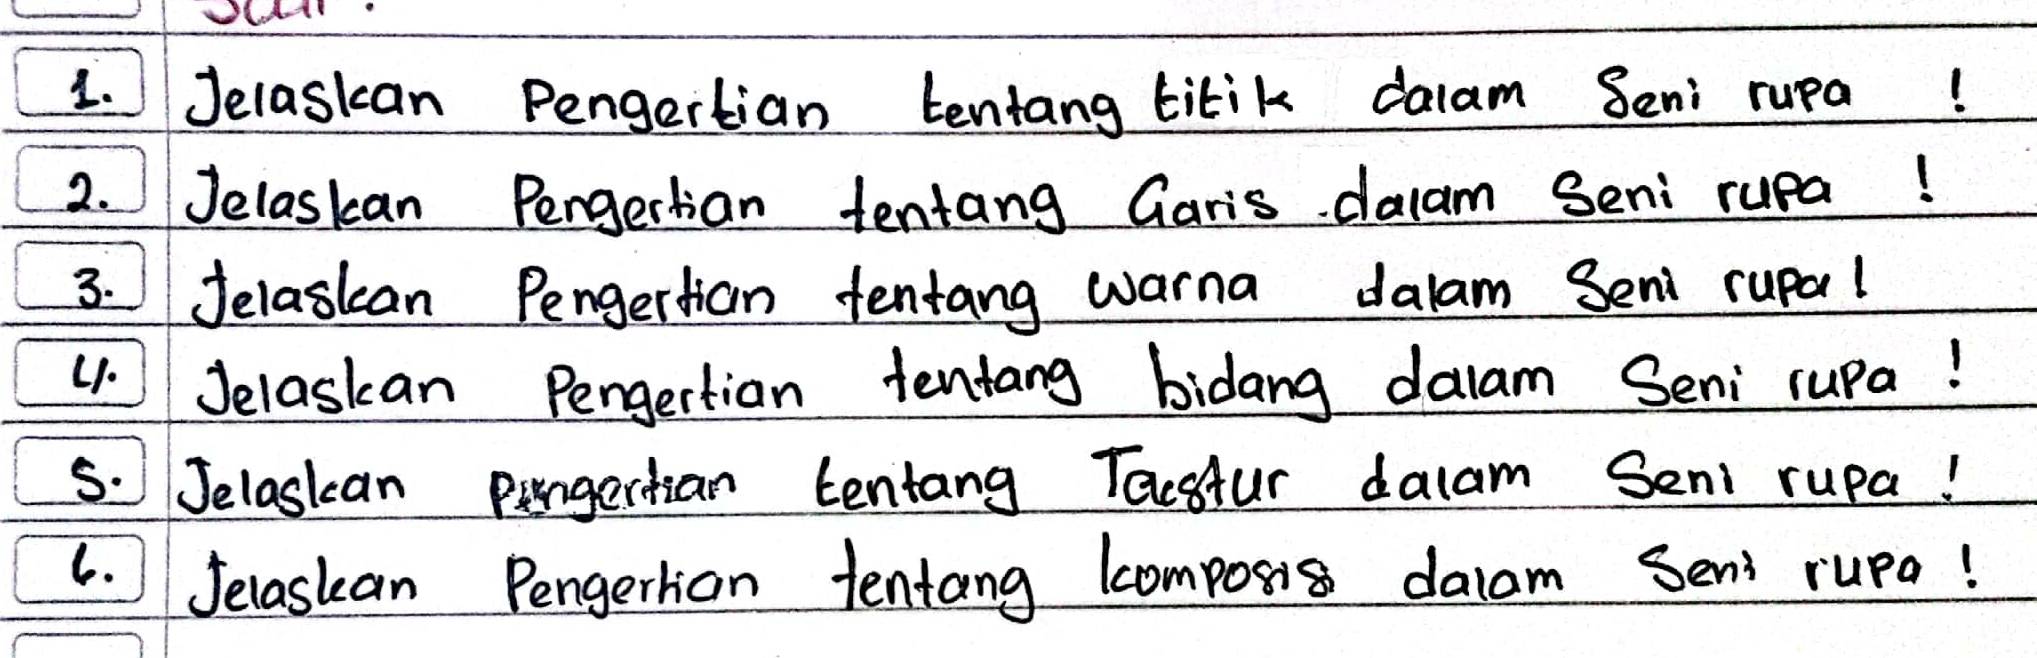 Soal :
1. Jelaskan Pengertian tentang titik dalam Seni rupa !
2. Jelaskan Pengertian tentang Garis dalam Seni rupa !
3. Jelaskan Pengertian tentang warna dalam Seni rupa !
4. Jelaskan Pengertian tentang bidang dalam Seni rupa !
5. Jelaskan pengertian tentang dalam Seni rupa !
6. Jelaskan Pengertian tentang komposis dalam Seni rupa !